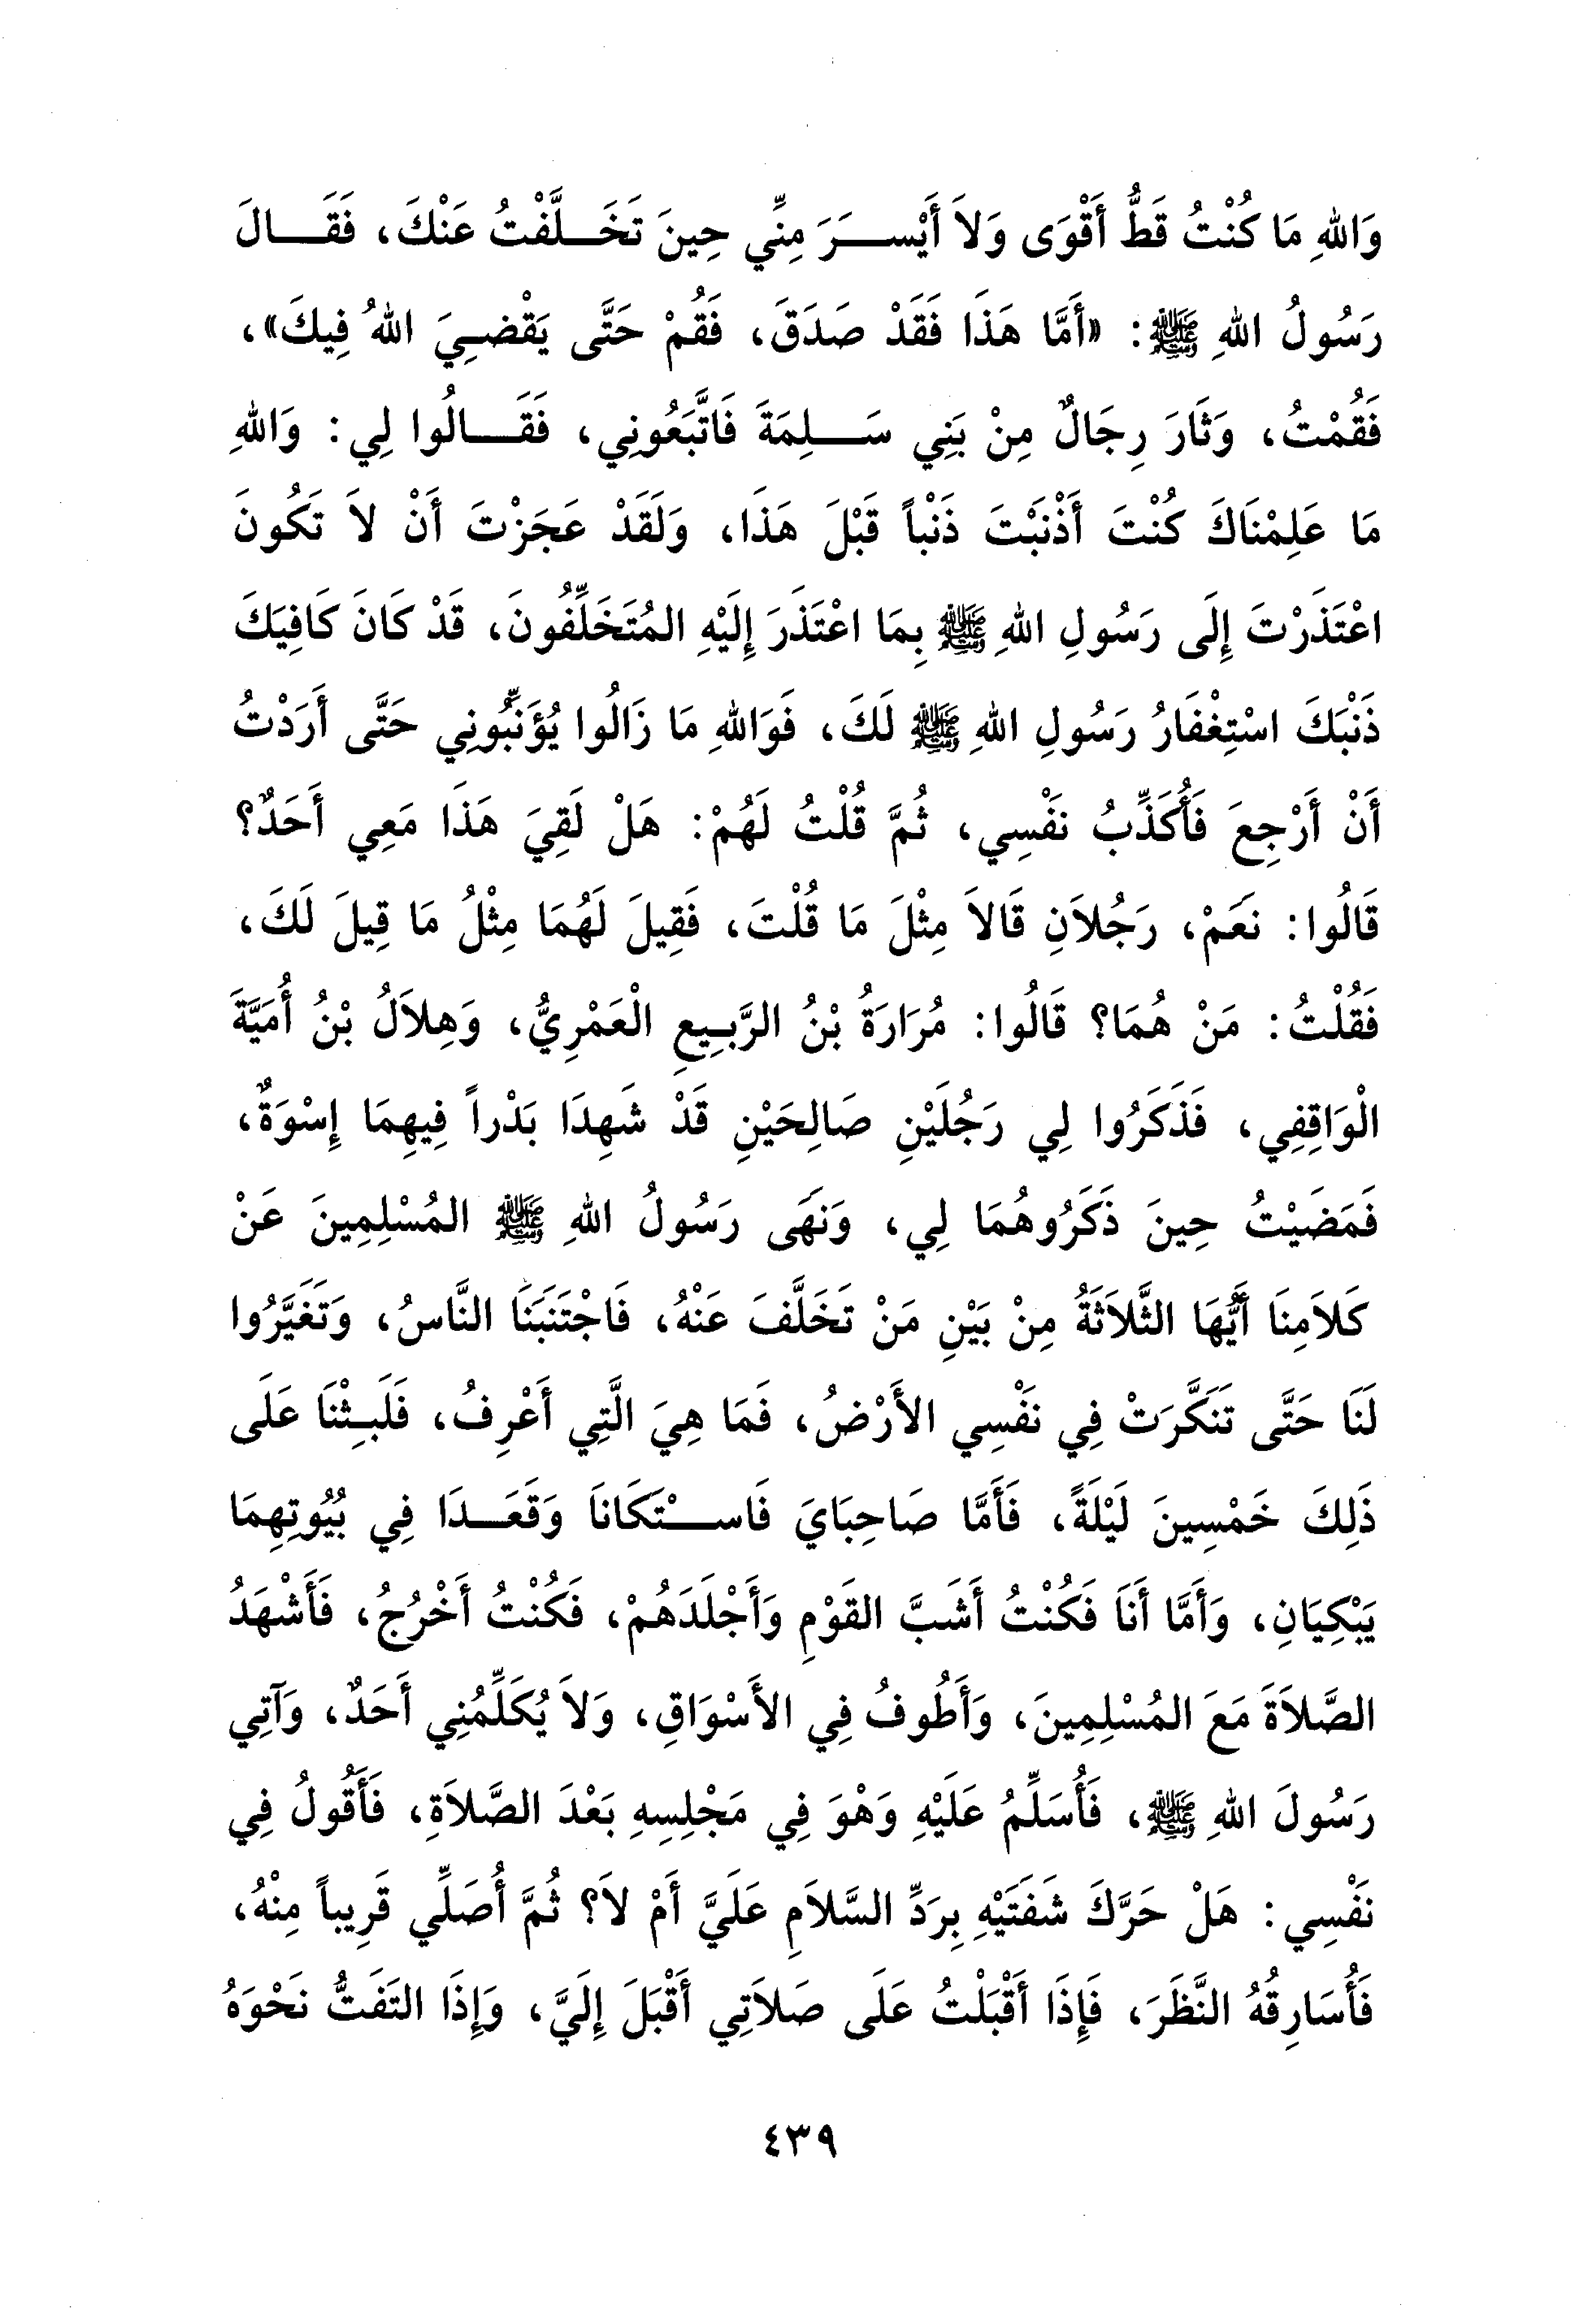 وَاللهِ مَا كُنْتُ قَطُّ أَقْوَى وَلاَ أَيْسَرَ مِنِّي حِينَ تَخَلَّفْتُ عَنْكَ، فَقَالَ
رَسُولُ اللهِ ﷺ: «أَمَّا هَذَا فَقَدْ صَدَقَ، فَقُمْ حَتَّى يَقْضِيَ اللهُ فِيكَ»،
فَقُمْتُ، وَثَارَ رِجَالٌ مِنْ بَنِي سَلِمَةَ فَاتَّبَعُونِي، فَقَالُوا لِي: وَاللهِ
مَا عَلِمْنَاكَ كُنْتَ أَذْنَبْتَ ذَنْباً قَبْلَ هَذَا، وَلَقَدْ عَجَزْتَ أَنْ لاَ تَكُونَ
اعْتَذَرْتَ إِلَى رَسُولِ اللهِ ﷺ بِمَا اعْتَذَرَ إِلَيْهِ المُتَخَلِّفُونَ، قَدْ كَانَ كَافِيَكَ
ذَنْبَكَ اسْتِغْفَارُ رَسُولِ اللهِ ﷺ لَكَ، فَوَاللهِ مَا زَالُوا يُؤَنِّبُونِي حَتَّى أَرَدْتُ
أَنْ أَرْجِعَ فَأُكَذِّبُ نَفْسِي، ثُمَّ قُلْتُ لَهُمْ: هَلْ لَقِيَ هَذَا مَعِي أَحَدٌ؟
قَالُوا: نَعَمْ، رَجُلاَنِ قَالاَ مِثْلَ مَا قُلْتَ، فَقِيلَ لَهُمَا مِثْلُ مَا قِيلَ لَكَ،
فَقُلْتُ: مَنْ هُمَا؟ قَالُوا: مُرَارَةُ بْنُ الرَّبِيعِ الْعَمْرِيُّ، وَهِلاَلُ بْنُ أُمَيَّةَ
الْوَاقِفِي، فَذَكَرُوا لِي رَجُلَيْنِ صَالِحَيْنِ قَدْ شَهِدَا بَدْراً فِيهِمَا إِسْوَةٌ،
فَمَضَيْتُ حِينَ ذَكَرُوهُمَا لِي، وَنَهَى رَسُولُ اللهِ ﷺ المُسْلِمِينَ عَنْ
كَلاَمِنَا أَيُّهَا الثَّلاَثَةُ مِنْ بَيْنِ مَنْ تَخَلَّفَ عَنْهُ، فَاجْتَنَبَنَا النَّاسُ، وَتَغَيَّرُوا
لَنَا حَتَّى تَنَكَّرَتْ فِي نَفْسِي الأَرْضُ، فَمَا هِيَ الَّتِي أَعْرِفُ، فَلَبِثْنَا عَلَى
ذَلِكَ خَمْسِينَ لَيْلَةً، فَأَمَّا صَاحِبَايَ فَاسْتَكَانَا وَقَعَدَا فِي بُيُوتِهِمَا
يَبْكِيَانِ، وَأَمَّا أَنَا فَكُنْتُ أَشَبَّ القَوْمِ وَأَجْلَدَهُمْ، فَكُنْتُ أَخْرُجُ، فَأَشْهَدُ
الصَّلاَةَ مَعَ المُسْلِمِينَ، وَأَطُوفُ فِي الأَسْوَاقِ، وَلاَ يُكَلِّمُنِي أَحَدٌ، وَآتِي
رَسُولَ اللهِ ﷺ، فَأُسَلِّمُ عَلَيْهِ وَهْوَ فِي مَجْلِسِهِ بَعْدَ الصَّلاَةِ، فَأَقُولُ فِي
نَفْسِي: هَلْ حَرَّكَ شَفَتَيْهِ بِرَدِّ السَّلاَمِ عَلَيَّ أَمْ لاَ؟ ثُمَّ أُصَلِّي قَرِيباً مِنْهُ،
فَأُسَارِقُهُ النَّظَرَ، فَإِذَا أَقْبَلْتُ عَلَى صَلاَتِي أَقْبَلَ إِلَيَّ، وَإِذَا التَفَتُّ نَحْوَهُ
٤٣٩